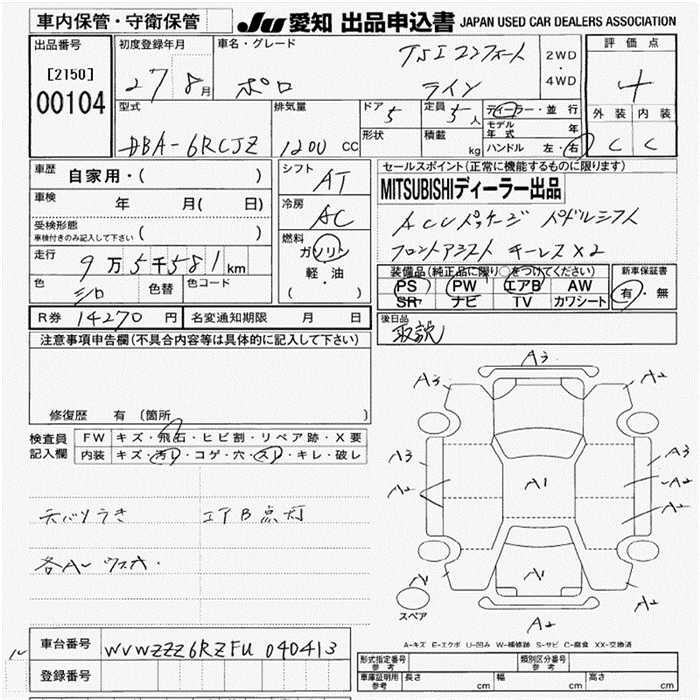 車内保管・守衛保管 JU 愛知 出品申込書 JAPAN USED CAR DEALERS ASSOCIATION
出品番号 [2150] 00104
初度登録年月 27 8月
車名・グレード ポロ TSI コンフォートライン
2WD・4WD
評価点 4
外装 C 内装 C
型式 DBA-6RCJZ
排気量 1200 CC
ドア 5 定員 5人
形状 積載 kg
ディーラー・並行
モデル年式 年
ハンドル 左・右
車歴 自家用・( )
車検 年 月( 日)
受検形態 車検付きのみ記入して下さい ( )
走行 9万5千581km
色 シロ 色替 色コード
シフト AT
冷房 AC
燃料 ガソリン 軽・油 ( )
セールスポイント(正常に機能するものに限ります)
MITSUBISHIディーラー出品
ACCパッケージ パドルシフト
フロントアシスト キーレスX2
装備品(純正品に限り○をつけてください)
PS PW エアB AW
SR ナビ TV カワシート
新車保証書 有・無
R券 14270円 名変通知期限 月 日
後日品 取説
注意事項申告欄(不具合内容等は具体的に記入して下さい)
修復歴 有 (箇所 )
検査員記入欄
FW キズ・飛石・ヒビ割・リペア跡・X要
内装 キズ・汚レ・コゲ・穴・スレ・キレ・破レ
天バリうき エアB点灯
各A ウスキ.
A3
A2 A2
A3 A3
A2 A1 A2
A2
A1 A1 A2
A2
スペア
A-キズ E-エクボ U-凹み W-補修跡 S-サビ C-腐食 XX-交換済
車台番号 WVWZZZ6RZFU040413
登録番号
形式指定番号 参考 類別区分番号 参考
車庫証明用 参考 長さ cm 幅 cm 高さ cm